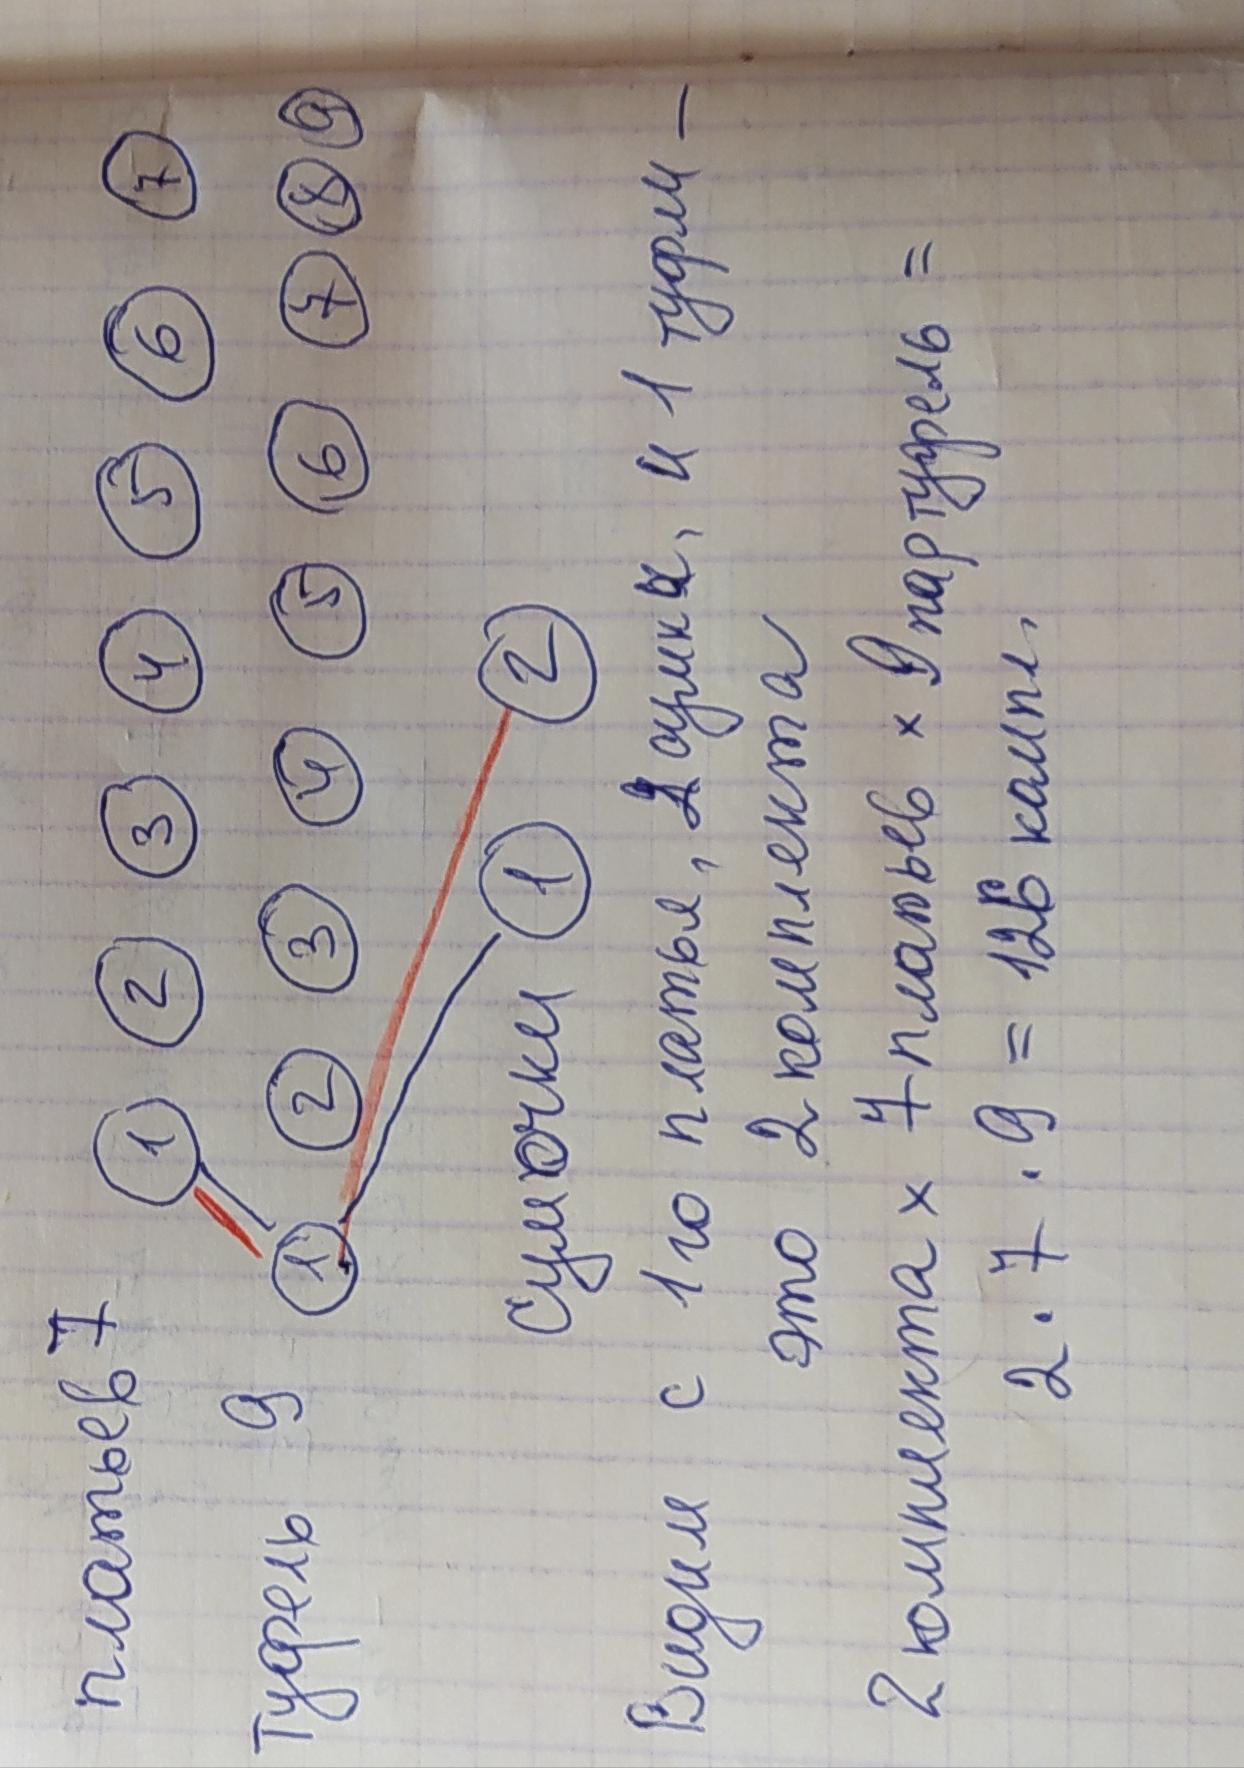 платьев 7 1 2 3 4 5 6 7
Туфель 9 1 2 3 4 5 6 7 8 9
Сумочки 1 2
Видим с 1го платья, 2 сумки, и 1 туфли –
это 2 комплекта
2 комплекта × 7 платьев × 9 пар туфель =
2 · 7 · 9 = 126 компл.